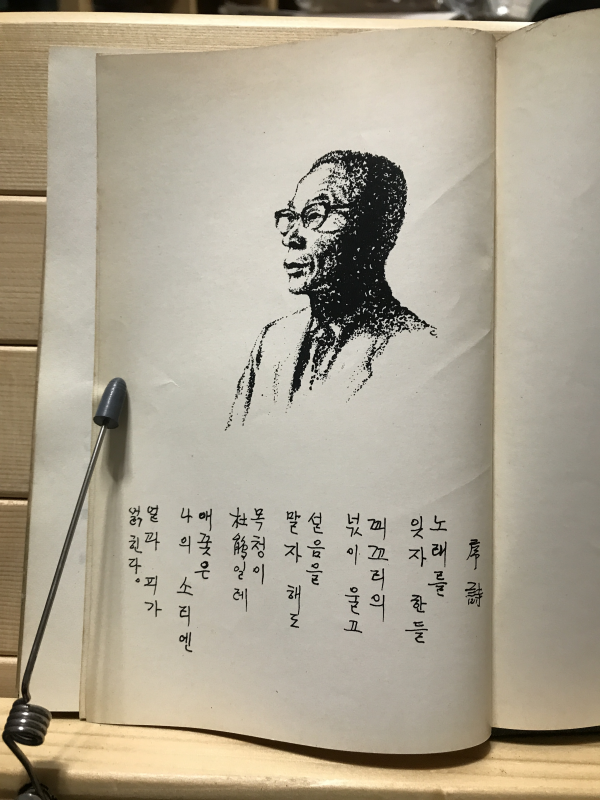 序詩
노래를
잊자 한들
꾀꼬리의
넋이 울고
설음을
말자 해도
목청이
杜鵑일레
애꽃은
나의 소리엔
얼과 피가
얽힌다.